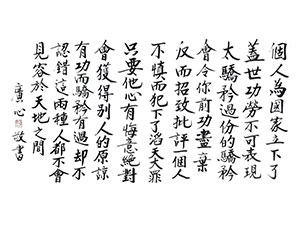 個人為國家立下了
蓋世功勞不可表現
太驕矜過份的驕矜
會令你前功盡棄
反而招致批評一個人
不慎而犯下了滔天大罪
只要他心有悔意絕對
會獲得別人的原諒
有功而驕矜有過却不
認錯這兩種人都不會
見容於天地之間
廣心敬書